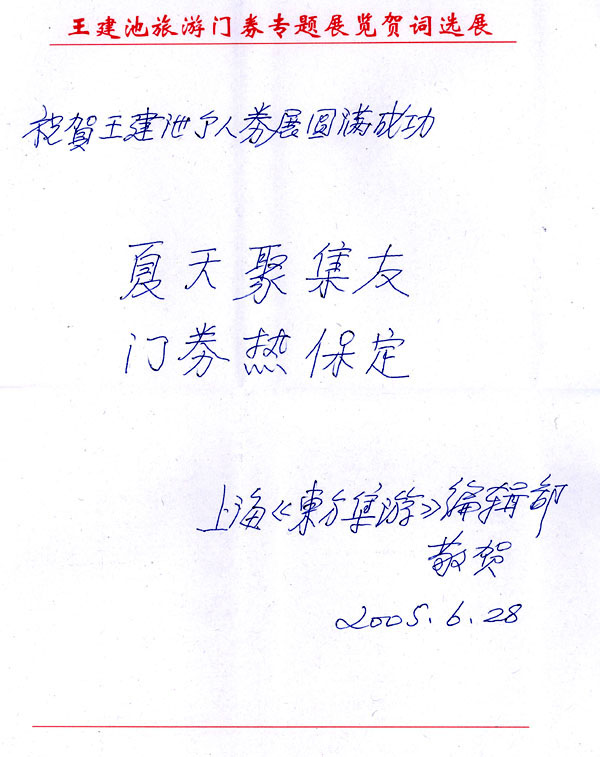 王建池旅游门券专题展览贺词选展
祝賀王建池个人券展圆满成功
夏天聚集友
门券热保定
上海《東方集游》编辑部
敬贺
2005.6.28